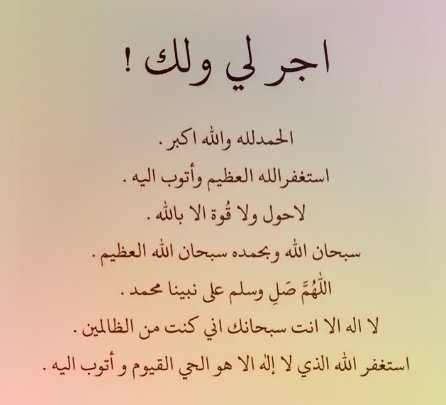 اجر لي ولك !
الحمدلله والله اكبر .
استغفرالله العظيم وأتوب اليه .
لاحول ولا قُوة الا بالله .
سبحان الله وبحمده سبحان الله العظيم .
اللّٰهُمَّ صَلِ وسلم على نبينا محمد .
لا اله الا انت سبحانك اني كنت من الظالمين .
استغفر الله الذي لا إله الا هو الحي القيوم و أتوب اليه .